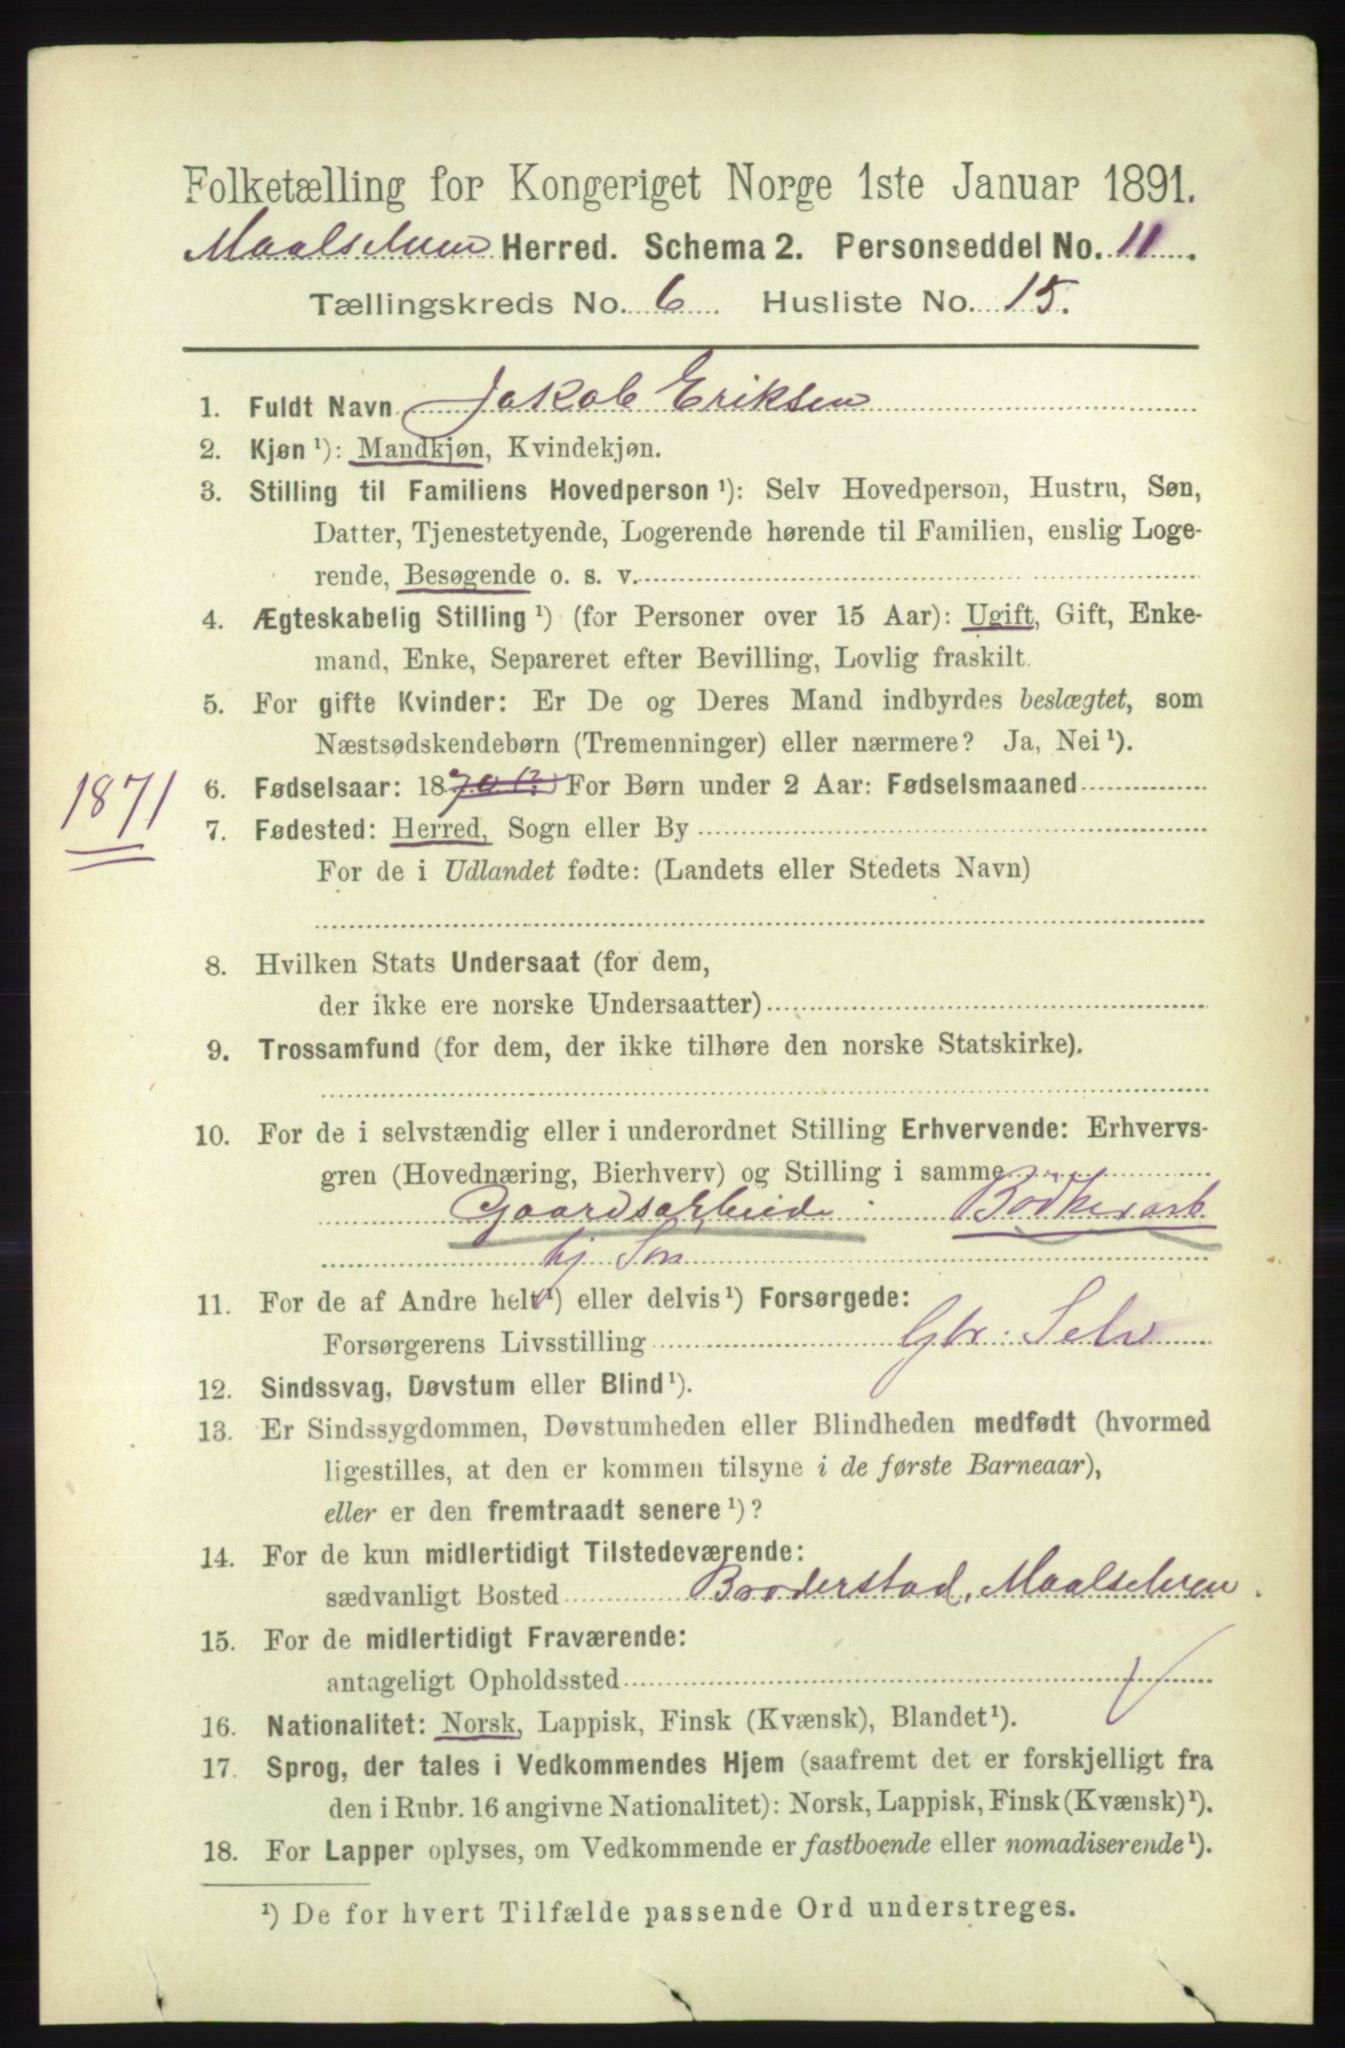 Folketælling for Kongeriget Norge 1ste Januar 1891.
Maalselven Herred. Schema 2. Personseddel No. 11.
Tællingskreds No. 6 Husliste No. 15.
1. Fuldt Navn Jakob Eriksen
2. Kjøn ¹): Mandkjøn, Kvindekjøn.
3. Stilling til Familiens Hovedperson ¹): Selv Hovedperson, Hustru, Søn,
Datter, Tjenestetyende, Logerende hørende til Familien, enslig Loge-
rende, Besøgende o. s. v.
4. Ægteskabelig Stilling ¹) (for Personer over 15 Aar): Ugift, Gift, Enke-
mand, Enke, Separeret efter Bevilling, Lovlig fraskilt.
5. For gifte Kvinder: Er De og Deres Mand indbyrdes beslægtet, som
Næstsødskendebørn (Tremenninger) eller nærmere? Ja, Nei ¹).
1871
6. Fødselsaar: 1870 For Børn under 2 Aar: Fødselsmaaned
7. Fødested: Herred, Sogn eller By
For de i Udlandet fødte: (Landets eller Stedets Navn)
8. Hvilken Stats Undersaat (for dem,
der ikke ere norske Undersaatter)
9. Trossamfund (for dem, der ikke tilhøre den norske Statskirke).
10. For de i selvstændig eller i underordnet Stilling Erhvervende: Erhvervs-
gren (Hovednæring, Bierhverv) og Stilling i samme
Gaardsarbeide : Bødkerarb
hj Søn
11. For de af Andre helt ¹) eller delvis ¹) Forsørgede:
Forsørgerens Livsstilling Gbr: Selv
12. Sindssvag, Døvstum eller Blind ¹).
13. Er Sindssygdommen, Døvstumheden eller Blindheden medfødt (hvormed
ligestilles, at den er kommen tilsyne i de første Barneaar),
eller er den fremtraadt senere ¹)?
14. For de kun midlertidigt Tilstedeværende:
sædvanligt Bosted Broderstad, Maalselven.
15. For de midlertidigt Fraværende:
antageligt Opholdssted
16. Nationalitet: Norsk, Lappisk, Finsk (Kvænsk), Blandet ¹).
17. Sprog, der tales i Vedkommendes Hjem (saafremt det er forskjelligt fra
den i Rubr. 16 angivne Nationalitet): Norsk, Lappisk, Finsk (Kvænsk) ¹).
18. For Lapper oplyses, om Vedkommende er fastboende eller nomadiserende ¹).
¹) De for hvert Tilfælde passende Ord understreges.